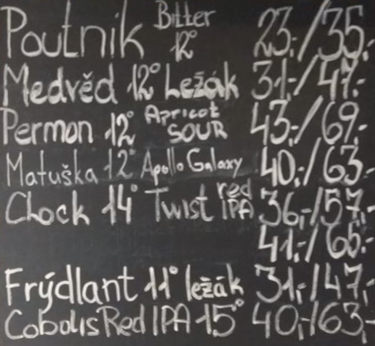 Poutník Bitter 12° 23,-/35,-
Medvěd 12° Ležák 31,-/47,-
Permon 12° Apricot SOUR 43,-/69,-
Matuška 12° Apollo Galaxy 40,-/63,-
Chock 14° Twist red IPA 36,-/57,-
41,-/66,-
Frýdlant 11° ležák 31,-/47,-
Cobolis Red IPA 15° 40,-/63,-